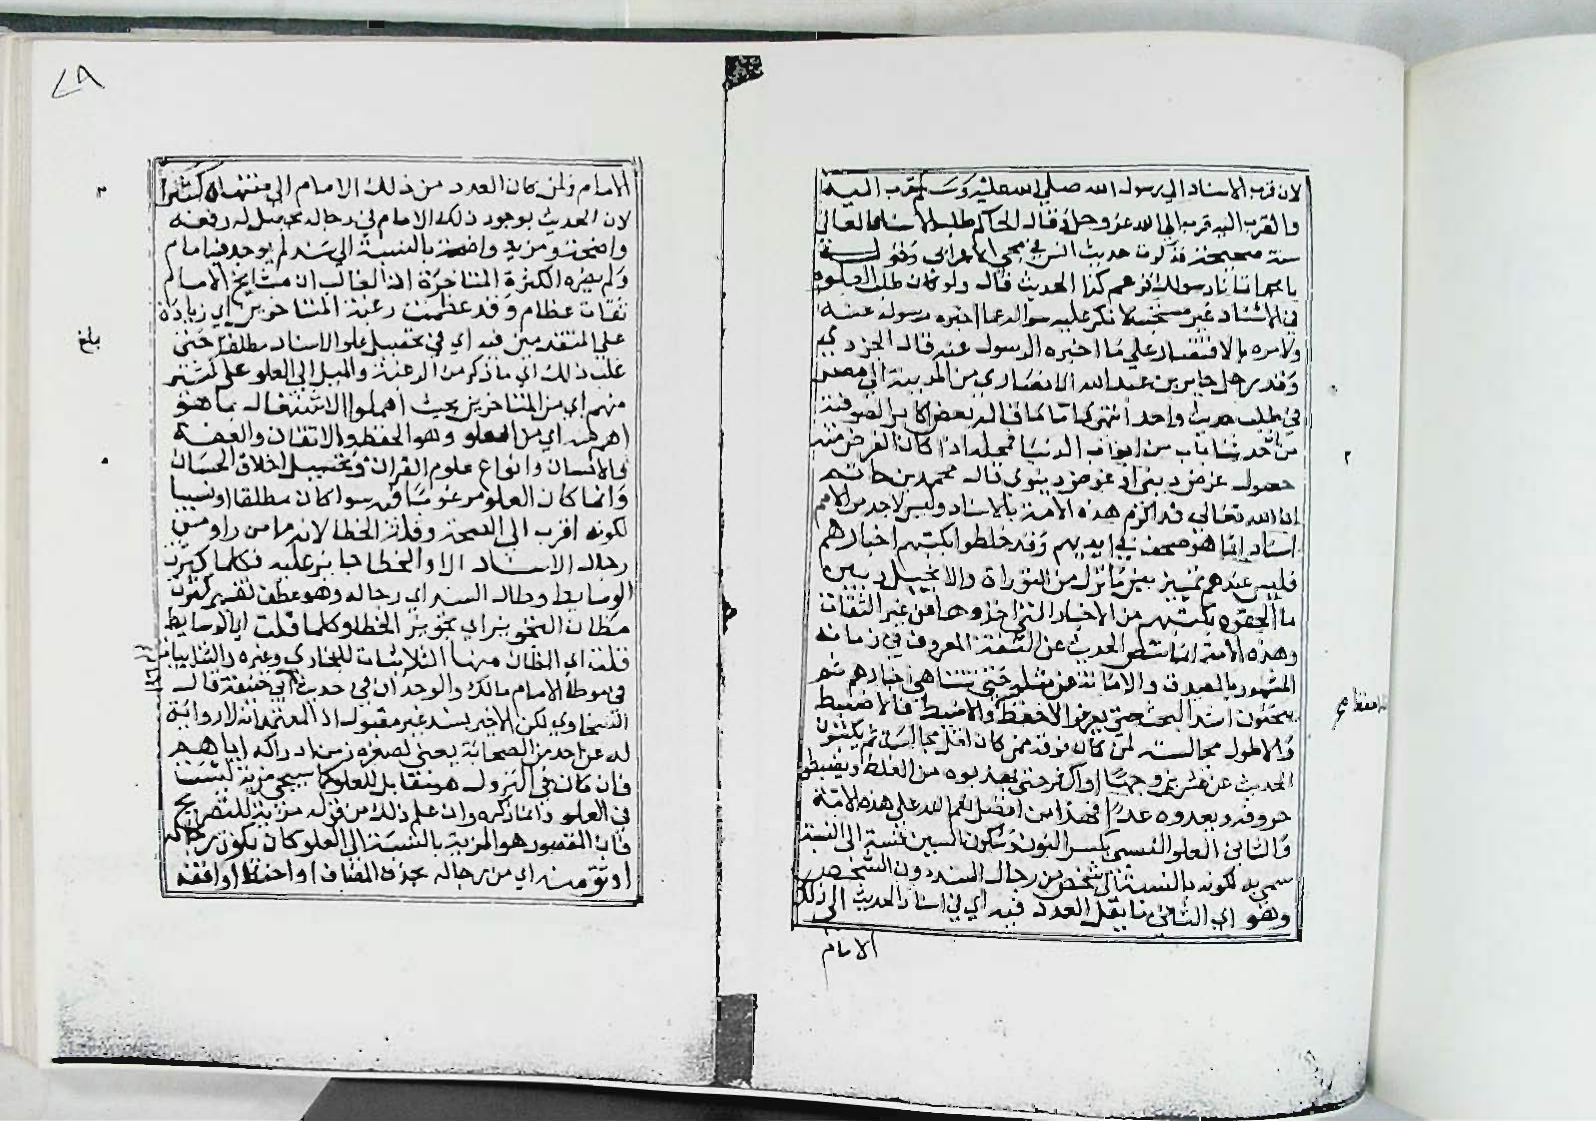 لان قرب الاسناد الي رسول الله صلي الله عليه وسلم قرب اليه
والقرب اليه قرب الي الله عز وجل قال الحاكم طلب الاسناد العالي
سنة صحيحة فذكر حديث انس في مجي الاعرابي وقوله
يا محمد اتانا رسولك فزعم كذا الحديث قال ولو كان طلب العلو
في الاسناد غير مستحب لانكر عليه سواله عما اخبره رسوله عنه
ولامره بالاقتصار علي ما اخبره الرسول عنه قال الجزري
وقد رحل جابر بن عبد الله الانصاري من المدينة الي مصر
في طلب حديث واحد انتهي كما قال بعض اكابر الصوفية
من ابواب الدنيا فمحله اذا كان الغرض منه
حصول غرض ديني او غرض دنيوي قال محمد بن حاتم
ان الله تعالي قد اكرم هذه الامة بالاسناد وليس لاحد من الامم
اسناد انما هو صحف في ايديهم وقد خلطوا بكتبهم اخبارهم
فليس عندهم تمييز بين ما نزل من التوراة والانجيل وبين
ما الحقوه بكتبهم من الاخبار التي اخذوها عن غير الثقات
وهذه الامة انما تنص الحديث عن الثقة المعروف في زمانه
المشهور بالصدق والامانة عن مثله حتي تتناهي اخبارهم ثم
يبحثون اشد البحث حتي يعرفوا الاحفظ والاضبط فالاضبط
والاطول مجالسة لمن كان فوقه ممن كان اقل مجالسة ثم يكتبون
الحديث عن عشرين وجها او اكثر حتي يهذبوه من الغلط ويضبطوا
حروفه ويعدوه عدا فهذا من افضل نعم الله علي هذه الامة
والثاني العلو النسبي بكسر النون وسكون السين نسبة الي النسبة
سمي به لكونه بالنسبة الي شخص من رجال السند دون الشخص
وهو اي الثاني ما يقل العدد فيه اي في اسناد الحديث الي ذلك
الامام
الامام ولو كان العدد من ذلك الامام الي منتهاه كثيرا
لان الحديث بوجود ذلك الامام في رجاله يحصل له رفعة
وصحة ومزيد واضحة بالنسبة الي سند لم يوجد فيه امام
ولم يضره الكثرة المتاخرة اذ الغالب ان مشايخ الامام
ثقات عظام وقد عظمت رغبة المتاخرين اي زيادة
علي المتقدمين فيه اي في تحصيل علو الاسناد مطلقا حتي
غلب ذلك اي ما ذكر من الرغبة والميل الي العلو علي كثير
منهم اي من المتاخرين بحيث اهملوا الاشتغال بما هو
اهم منه اي من العلو وهو الحفظ والاتقان والعفة
والاحسان وانواع علوم القران وتحصيل اخلاق الحسان
وانما كان العلو مرغوبا فيه سوا كان مطلقا او نسبيا
لكونه اقرب الي الصحة وقلة الخطا لانه ما من راو من
رجال الاسناد الا والخطا جايز عليه فكلما كثرت
الوسايط وطال السند اي رجاله وهو عطف تفسير كثرت
مظان التجويز اي تجويز الخطا وكلما قلت اي الوسايط
قلت اي المظان منها الثلاثيات للبخاري وغيره والثنائيات
في موطا الامام مالك والوحدان في حديث ابي حنيفة قال
السخاوي لكن الاخير بسند غير مقبول اذ المعتمد انه لا رواية
له عن احد من الصحابة يعني لصغره زمن ادراكه اياهم
فان كان في النزول هو مقابل للعلو كما سيجي مزية ليست
في العلو وانما ذكره وان علم ذلك من قوله مزية للتصريح
فان المقصود هو المزية بالنسبة الي العلو كان يكون رجاله
اوثق منه اي من رجاله بحذف المضاف او احفظ او افقه
بلغ